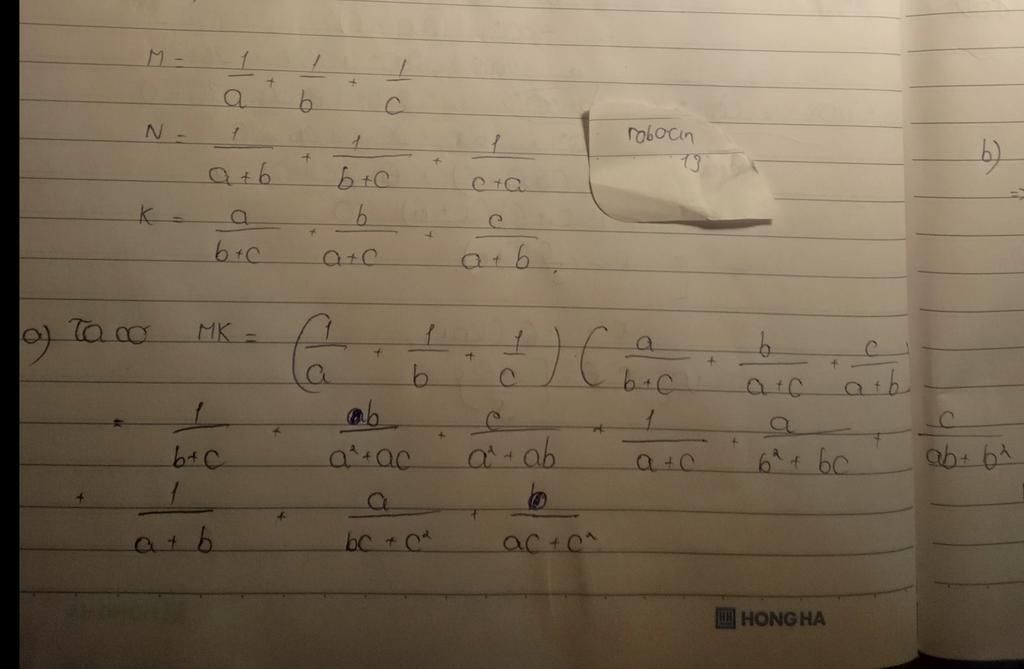 M = 1/a + 1/b + 1/c
N = 1/(a+b) + 1/(b+c) + 1/(c+a)
robocin
19
b)
=>
K = a/(b+c) + b/(a+c) + c/(a+b).
a) Ta có MK = (1/a + 1/b + 1/c) . (a/(b+c) + b/(a+c) + c/(a+b)
= 1/(b+c) + b/(a²+ac) + c/(a²+ab) + 1/(a+c) + a/(b²+bc) + c/(ab+b²)
+ 1/(a+b) + a/(bc+c²) + b/(ac+c²)
HONG HA